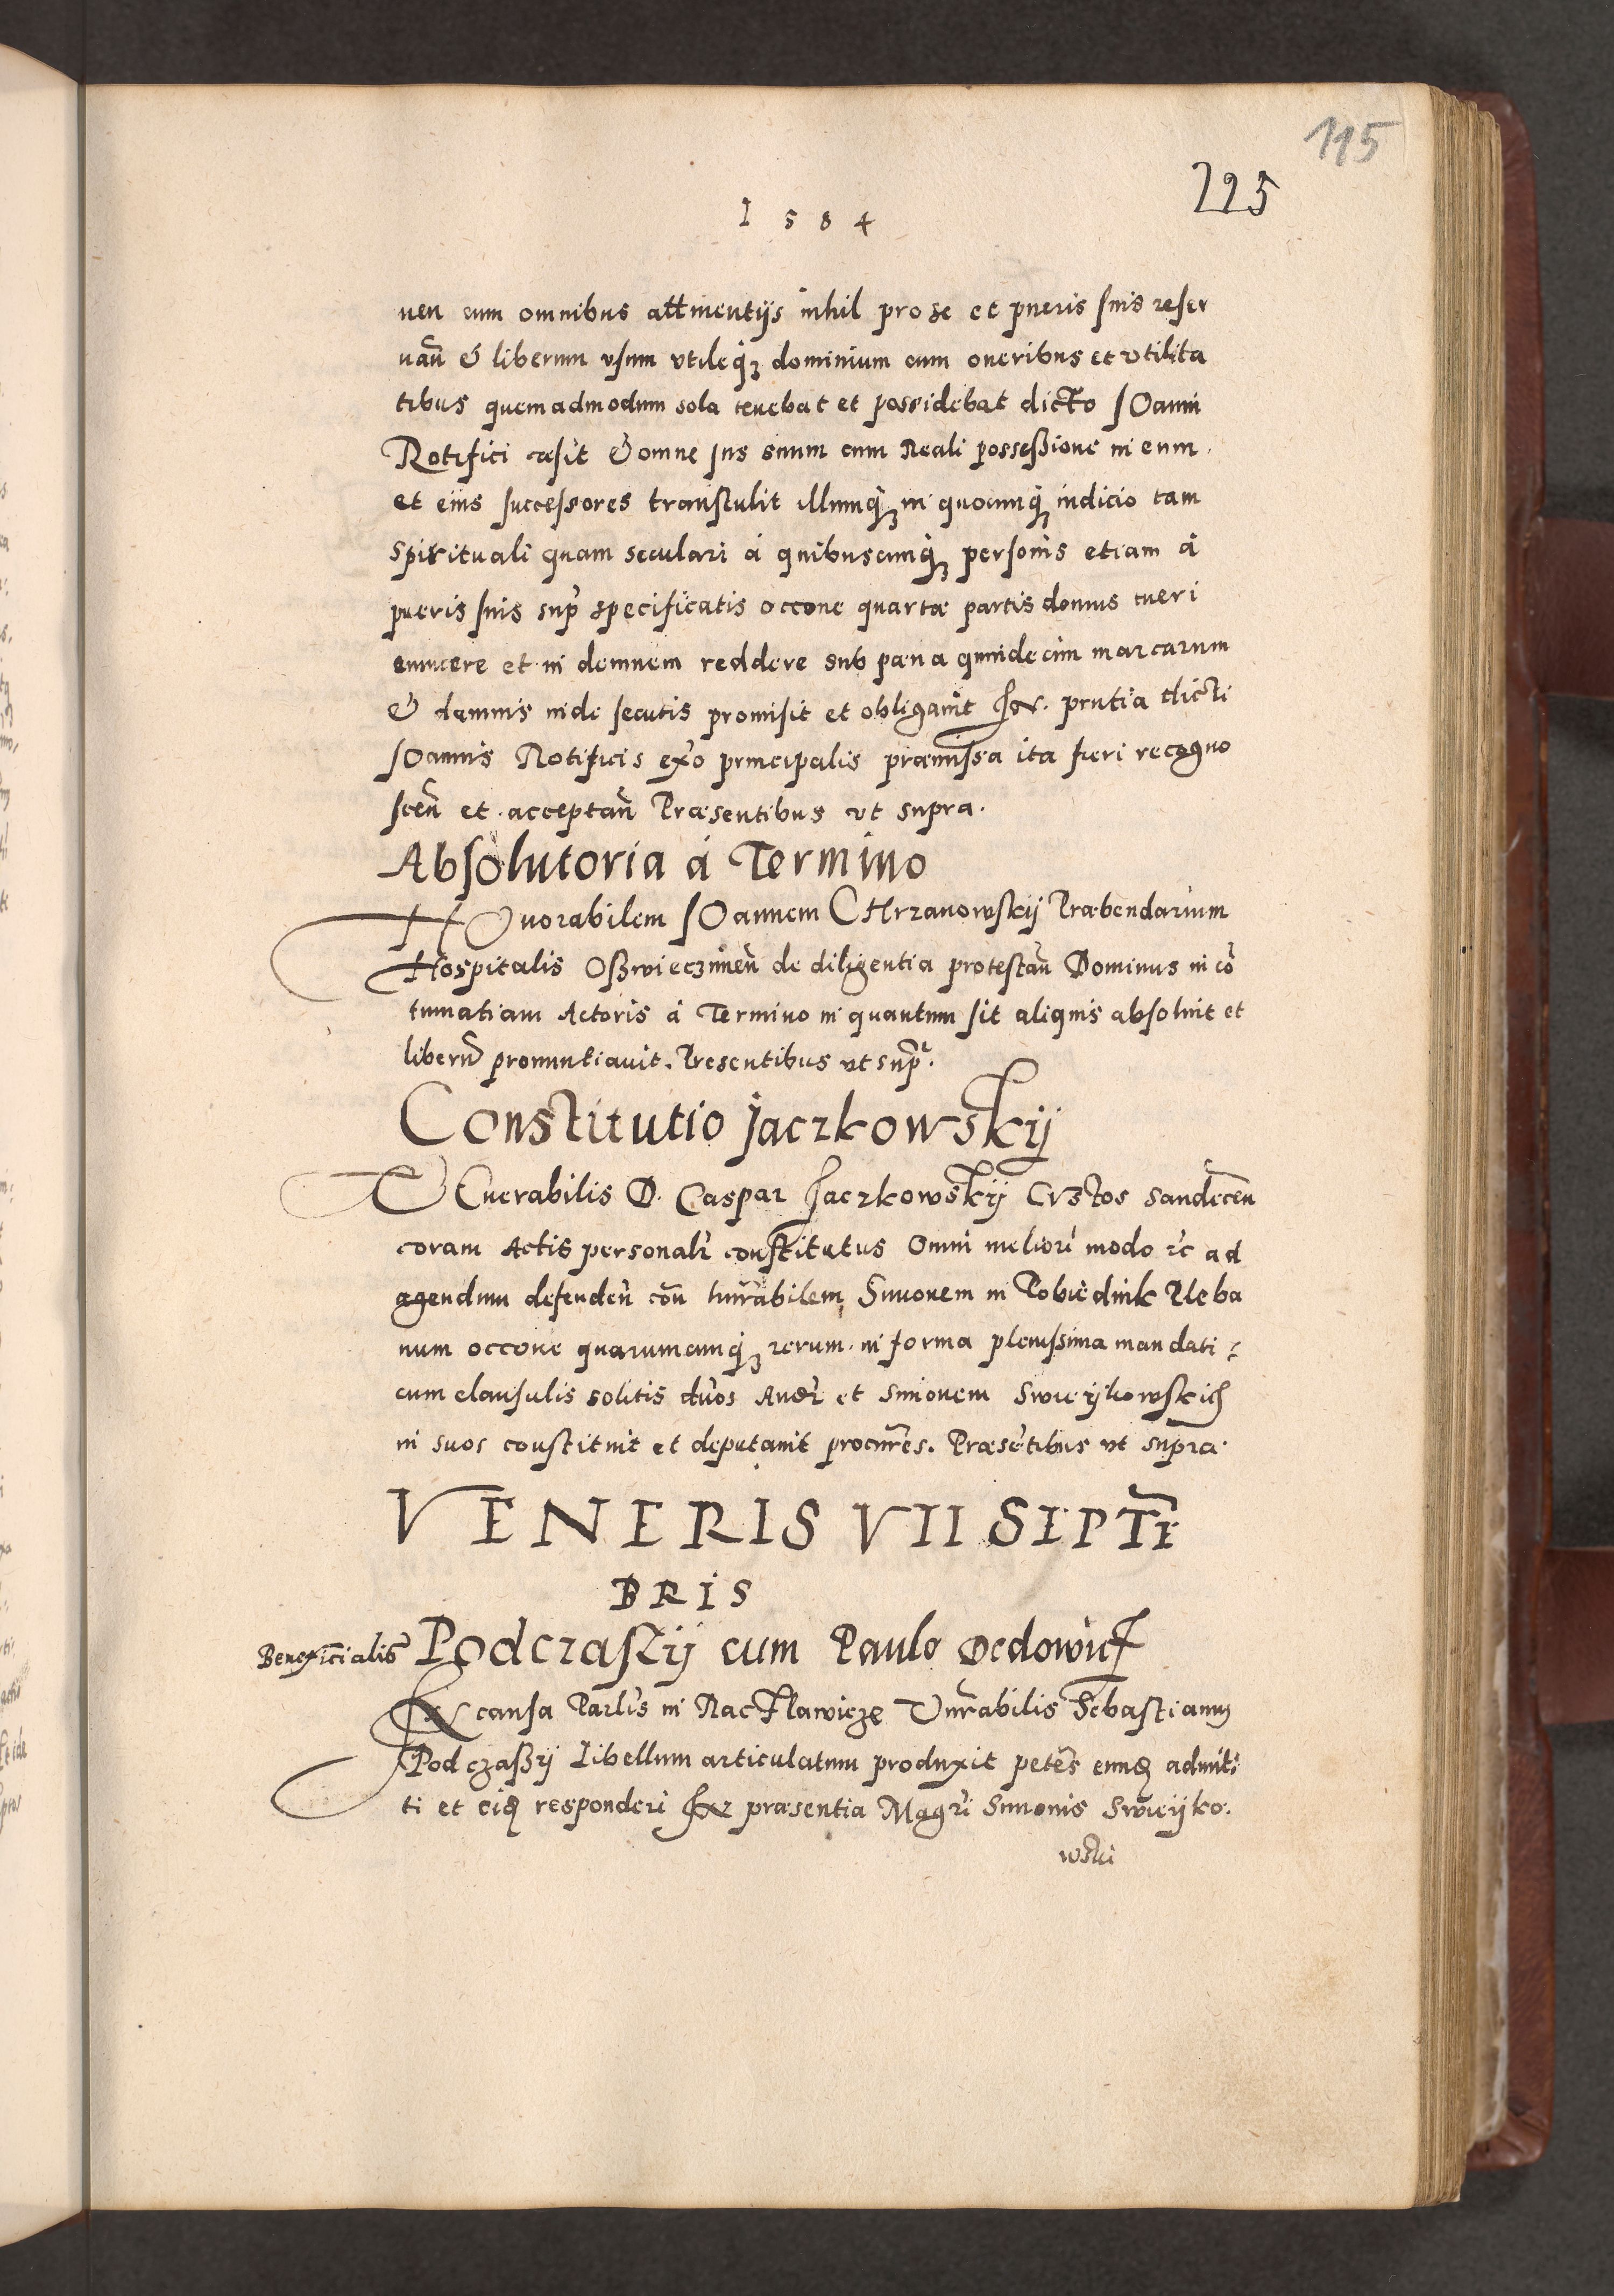 115
225
1584
nen cum omnibus attinentijs nihil pro se et pueris suis reser
uan̄ & liberum vsum vtileq́ꝫ dominium cum oneribus et vtilita
tibus quemadmodum sola tenebat et possidebat dicto IOanni
Rotifici cæsit & omne Ius suum cum Reali possessione in eum.
et eius successores transtulit illumq́ꝫ in quocunq́ꝫ iudicio tam
spirituali quam seculari á quibuscunq́ꝫ personis etiam á
pueris suis supr̄ specificatis occōne quartæ partis domus tueri
euincere et in demnem reddere sub pæna quindecim marcarum
& damnis inde secutis promisit et obligauit prn̄tia dicti
IOannis Rotificis ex̄o principalis præmissa ita fieri recogno
scen̄ et acceptan̄ Præsentibus vt supra.
Absolutoria á Termino
HOnorabilem IOannem CHrzanowskij Præbendarium
Hospitalis Osswiecziмen̄ de diligentia protestan̄ Dominus in cō
tumatiam Actoris á Termino in quantum sit aliquis absoluit et
liberū pronuntiauit. Presentibus vt supr̄.
Constitutio Jaczkowskij
VEnerabilis D. Caspar Jaczkowskij Cvstos Sandecen̄
coram Actis personalr̄ constitutus Omni meliori modo &c ad
agendum defenden̄ con̄ hnr̄abilem Simonem in Pobiednik Pleba
num occōne quarumcunq́ꝫ rerum. in forma plenissima mandati
cum clausulis solitis dn̄os Andr̄ et Simonem Swieykowskich
in suos constituit et deputauit procur̄res. Præsētibus vt supra.
VENERIS VII SEPTĒ
BRIS
Beneficialis Podczaszij cum Paulo Dedowicz
EX causa Parlis in Raclawicze Vnr̄abilis Sebastianus
Podczassij Libellum articulatum produxit petēs eumdē admit
ti et eidē responderi præsentia Magr̄i Simonis Swieyko.
wski